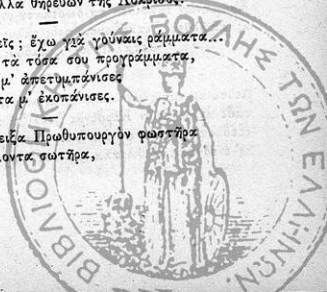 λλα θηρεύων τῆς Λοκρίδος.
εῖς ; ἔχω γιὰ γούναις ράμματα...
τὰ τόσα σου προγράμματα,
μ' ἀπετυμπάνισες
τα μ' ἐκοπάνισες.
ειξα Πρωθυπουργὸν φωστῆρα
λοντα σωτῆρα,
ΒΙΒΛΙΟΘΗΚΗ ΤΗΣ ΒΟΥΛΗΣ ΤΩΝ ΕΛΛΗΝΩΝ